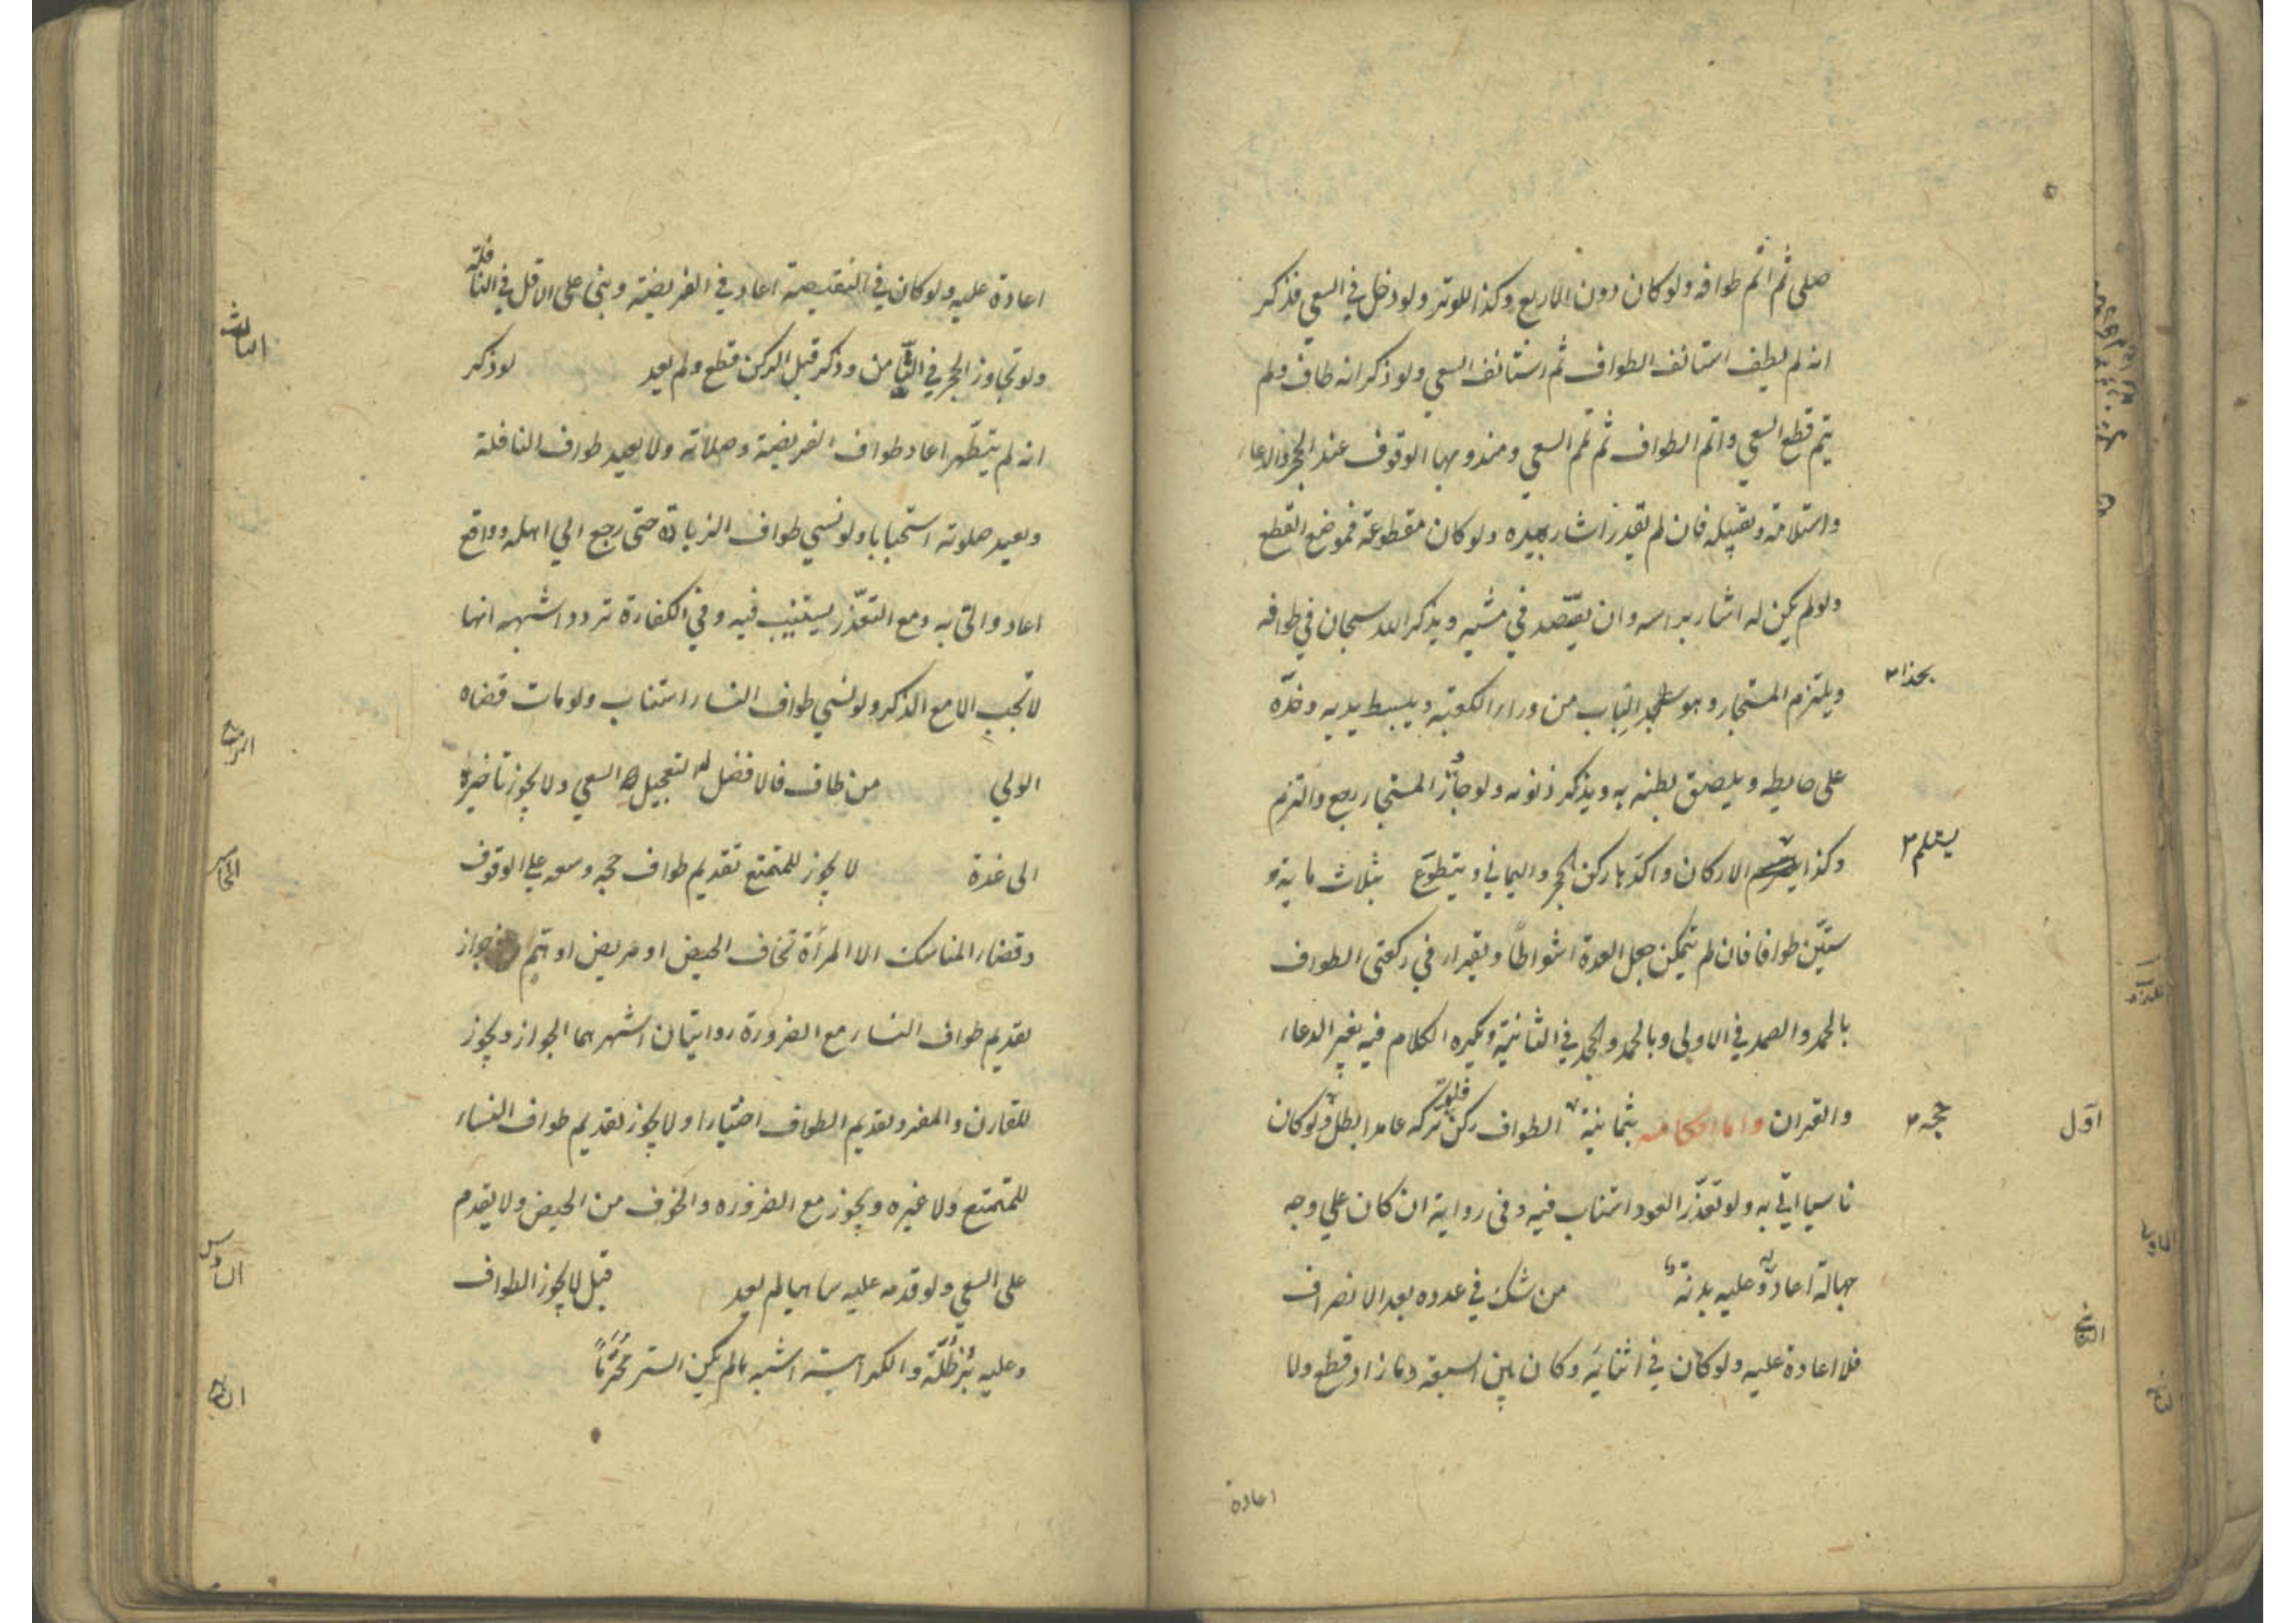 صلى ثم اتم طوافه ولو كان دون الاربع وكذا للوتر ولو دخل في السعي فذكر
انه لم يطف استانف الطواف ثم استانف السعي ولو ذكر انه طاف ولم
يتم قطع السعي واتم الطواف ثم تم السعي ومندوبها الوقوف عند الحجر والدعاء
واستلامه وتقبيله فان لم يقدر اشار بيده ولو كان مقطوعة فموضع القطع
ولو لم يكن له اشار براسه وان يقتصد في مشيه ويذكر الله سبحان في طوافه
ويلتزم المستجار وهو الباب من وراء الكعبة ويبسط يديه وخده
بحذاء
على حايطه ويلصق بطنه به ويذكر ذنوبه ولو جاز المستجار رجع والتزم
وكذا الاركان واكدها ركن الحجر واليماني ويتطوع بثلاث ماية و
يستلم
ستين طوافا فان لم يتمكن جعل العدة اشواطا ويقرا في ركعتى الطواف
بالحمد والصمد في الاولى وبالحمد والجحد في الثانية ويكره الكلام فيه بغير الدعاء
والقران واما احكامه فثمانية الطواف ركن فلو تركه عامدا بطل حجه ولو كان
حجه
اول
ناسيا اتى به ولو تعذر العود استناب فيه وفى رواية ان كان علي وجه
جهالة اعاد وعليه بدنة من شك في عدده بعد الانصراف
الثاني
فلا اعادة عليه ولو كان في اثنائه وكان بين السبعة وما زاد قطع ولا
اعادة
اعادة عليه ولو كان في النقيصة اعاد في الفريضة وبنى على الاقل في النافلة
ولو تجاوز الحجر في الثامن وذكر قبل الركن قطع ولم يعد لو ذكر
الثالث
انه لم يتطهر اعاد طواف الفريضة وصلاته ولا يعيد طواف النافلة
ويعيد صلوته استحبابا ولو نسي طواف الزيارة حتى رجع الي اهله وواقع
اعاد واتى به ومع التعذر يستنيب فيه وفي الكفارة تردد اشبهه انها
لا تجب الا مع الذكر ولو نسي طواف النساء استناب ولو مات قضاه
الولي من طاف فالافضل له تعجيل السعي ولا يجوز تاخيره
الرابع
الى غدة لا يجوز للمتمتع تقديم طواف حجه وسعيه علي الوقوف
الخامس
وقضاء المناسك الا المرأة تخاف الحيض او مريض او هم جواز
تقديم طواف النساء مع الضرورة روايتان اشهرهما الجواز ويجوز
للقارن والمفرد تقديم الطواف اختيارا ولا يجوز تقديم طواف النساء
للمتمتع ولا غيره ويجوز مع الضروره والخوف من الحيض ولا يقدم
على السعي ولو قدمه عليه ساهيا لم يعد قيل لا يجوز الطواف
السادس
وعليه برطلة والكراهية اشبه ما لم يكن الستر محرما